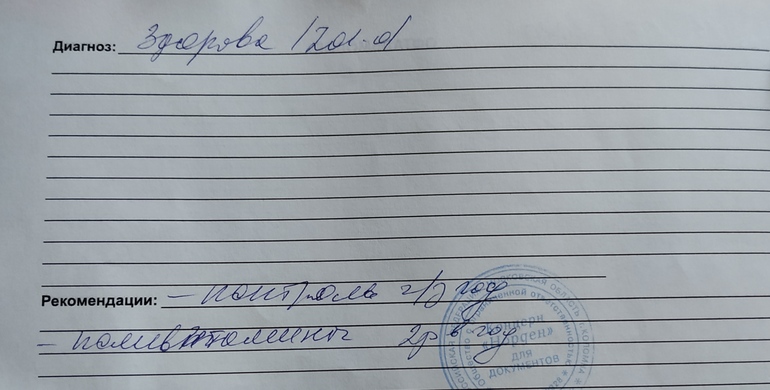 Диагноз: Здорова /Z01.0/
Рекомендации: - контроль ч/з год
- поливитамины 2р в год
РОССИЙСКАЯ ФЕДЕРАЦИЯ МОСКОВСКАЯ ОБЛАСТЬ г. КОЛОМНА
Общество с ограниченной ответственностью
для
ДОКУМЕНТОВ